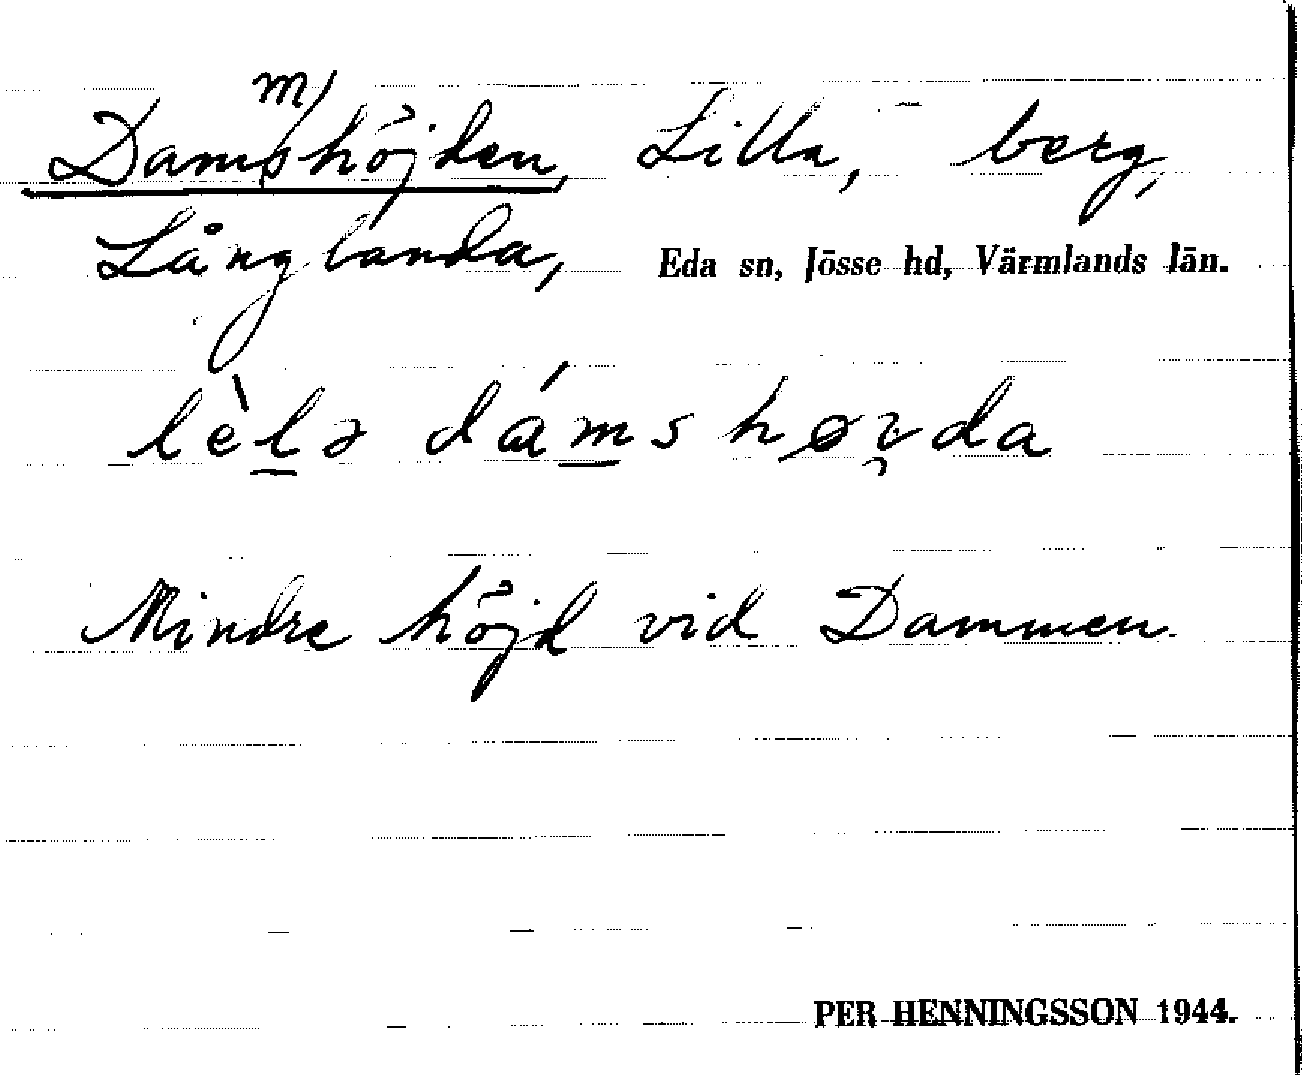 Dammshöjden, Lilla, berg,
Långlanda, Eda sn, Jösse hd, Värmlands län.
lèlə dámshøɩ̯da
Mindre höjd vid Dammen.
PER HENNINGSSON 1944.